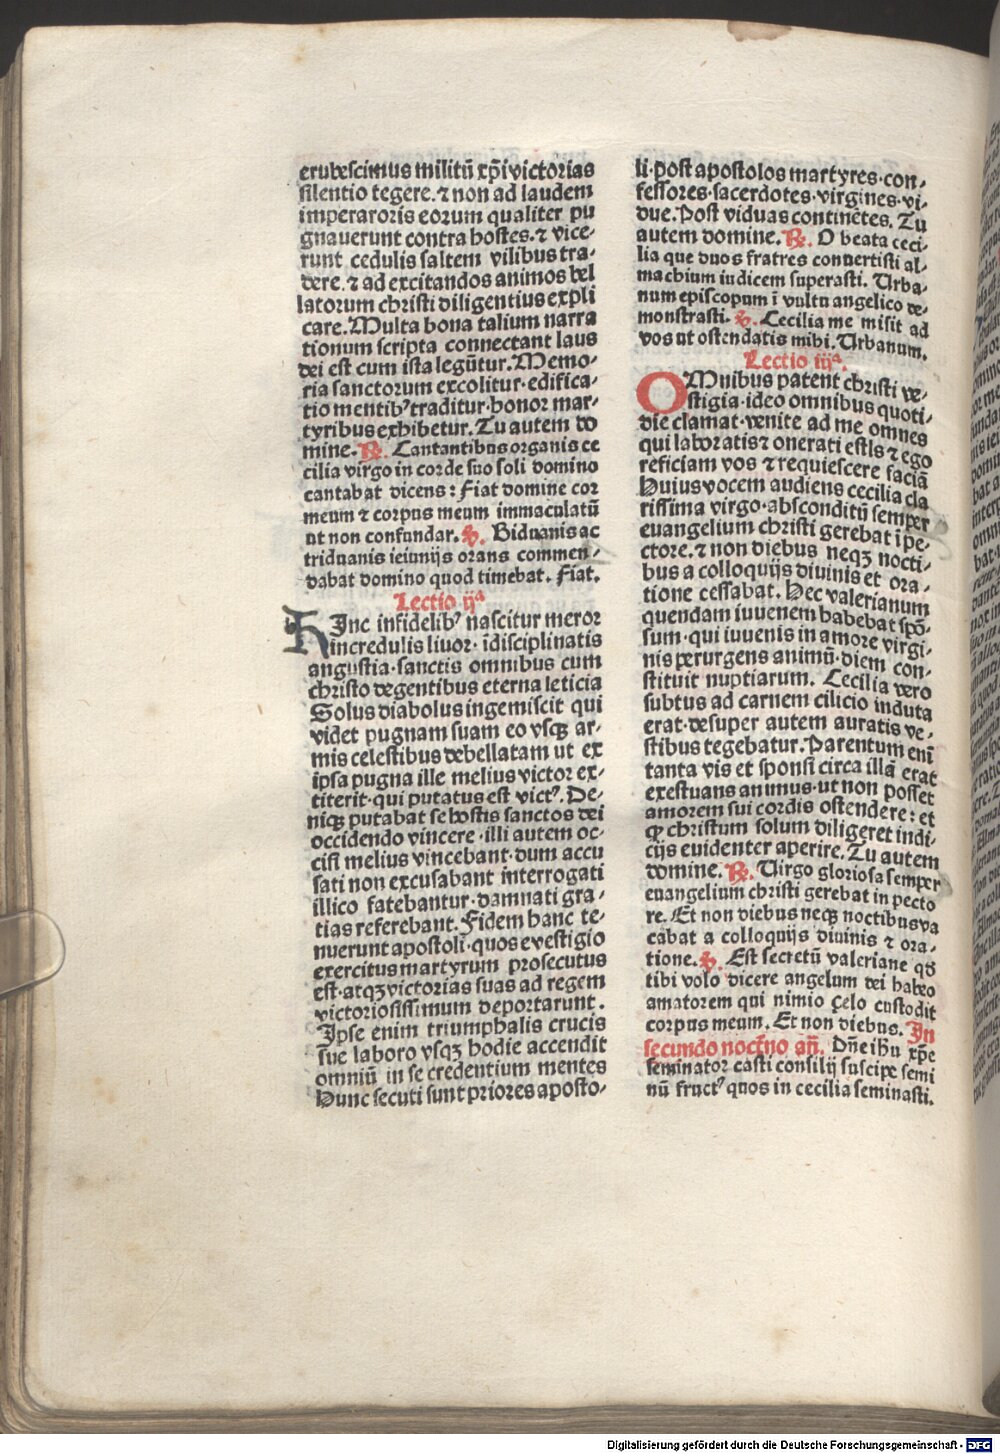 erubescimus militū xp̄i victorias
silentio tegere. ⁊ non ad laudem
imperaroris eorum qualiter pu
gnauerunt contra hostes. ⁊ vice-
runt cedulis saltem vilibus tra-
dere. ⁊ ad excitandos animos bel
latorum christi diligentius expli
care. Multa bona talium narra
tionum scripta connectant laus
dei est cum ista legūtur. Memo-
ria sanctorum excolitur· edifica-
tio mentibꝰ traditur· honor mar-
tyribus exhibetur. Tu autem do
mine. ℟. Cantantibus organis ce
cilia virgo in corde suo soli domino
cantabat dicens: Fiat domine cor
meum ⁊ corpus meum immaculatū
ut non confundar. ℣. Biduanis ac
triduanis ieiunijs orans commen-
dabat domino quod timebat. Fiat.
Lectio ijª
HInc infidelibꝰ nascitur meror
incredulis liuor· īdisciplinatis
angustia· sanctis omnibus cum
christo degentibus eterna leticia
Solus diabolus ingemiscit qui
videt pugnam suam eo vsqꝫ ar-
mis celestibus debellatam ut ex
ipsa pugna ille melius victor ex-
titerit· qui putatus est victꝰ. De-
niqꝫ putabat se hostis sanctos dei
occidendo vincere· illi autem oc-
cisi melius vincebant· dum accu
sati non excusabant interrogati
illico fatebantur· damnati gra-
tias referebant. Fidem hanc te-
nuerunt apostoli· quos e vestigio
exercitus martyrum prosecutus
est· atqꝫ victorias suas ad regem
victoriosissimum deportarunt.
Ipse enim triumphalis crucis
sue laboro vsqꝫ hodie accendit
omniū in se credentium mentes
Hunc secuti sunt priores aposto-
li· post apostolos martyres· con-
fessores· sacerdotes· virgines· vi-
due. Post viduas continētes. Tu
autem domine. ℟. O beata ceci-
lia que duos fratres conuertisti al-
machium iudicem superasti. Urba-
num episcopum ī vultu angelico de-
monstrasti. ℣. Cecilia me misit ad
vos ut ostendatis mihi. Urbanum.
Lectio iijª.
OMnibus patent christi ve-
stigia· ideo omnibus quoti-
die clamat· venite ad me omnes
qui laboratis ⁊ onerati estis ⁊ ego
reficiam vos ⁊ requiescere faciā
Huius vocem audiens cecilia cla
rissima virgo· absconditū semper
euangelium christi gerebat ī pe-
ctore. ⁊ non diebus neqꝫ nocti-
bus a colloquijs diuinis et ora-
tione cessabat. Hec valerianum
quendam iuuenem habebat spō-
sum· qui iuuenis in amore virgi-
nis perurgens animū· diem con-
stituit nuptiarum. Cecilia vero
subtus ad carnem cilicio induta
erat· desuper autem auratis ve-
stibus tegebatur. Parentum enī
tanta vis et sponsi circa illā erat
exestuans animus· ut non posset
amorem sui cordis ostendere: et
ꝙ christum solum diligeret indi-
cijs euidenter aperire. Tu autem
domine. ℟. Uirgo gloriosa semper
euangelium christi gerebat in pecto
re. Et non diebus neqꝫ noctibus va
cabat a colloquijs diuinis ⁊ ora-
tione. ℣. Est secretū valeriane qđ
tibi volo dicere angelum dei habeo
amatorem qui nimio çelo custodit
corpus meum. Et non diebus. In
secundo noct̄no an̄. Dn̄e ihū xp̄e
seminator casti consilij suscipe semi
nū fructꝰ quos in cecilia seminasti.
Digitalisierung gefördert durch die Deutsche Forschungsgemeinschaft - DFG